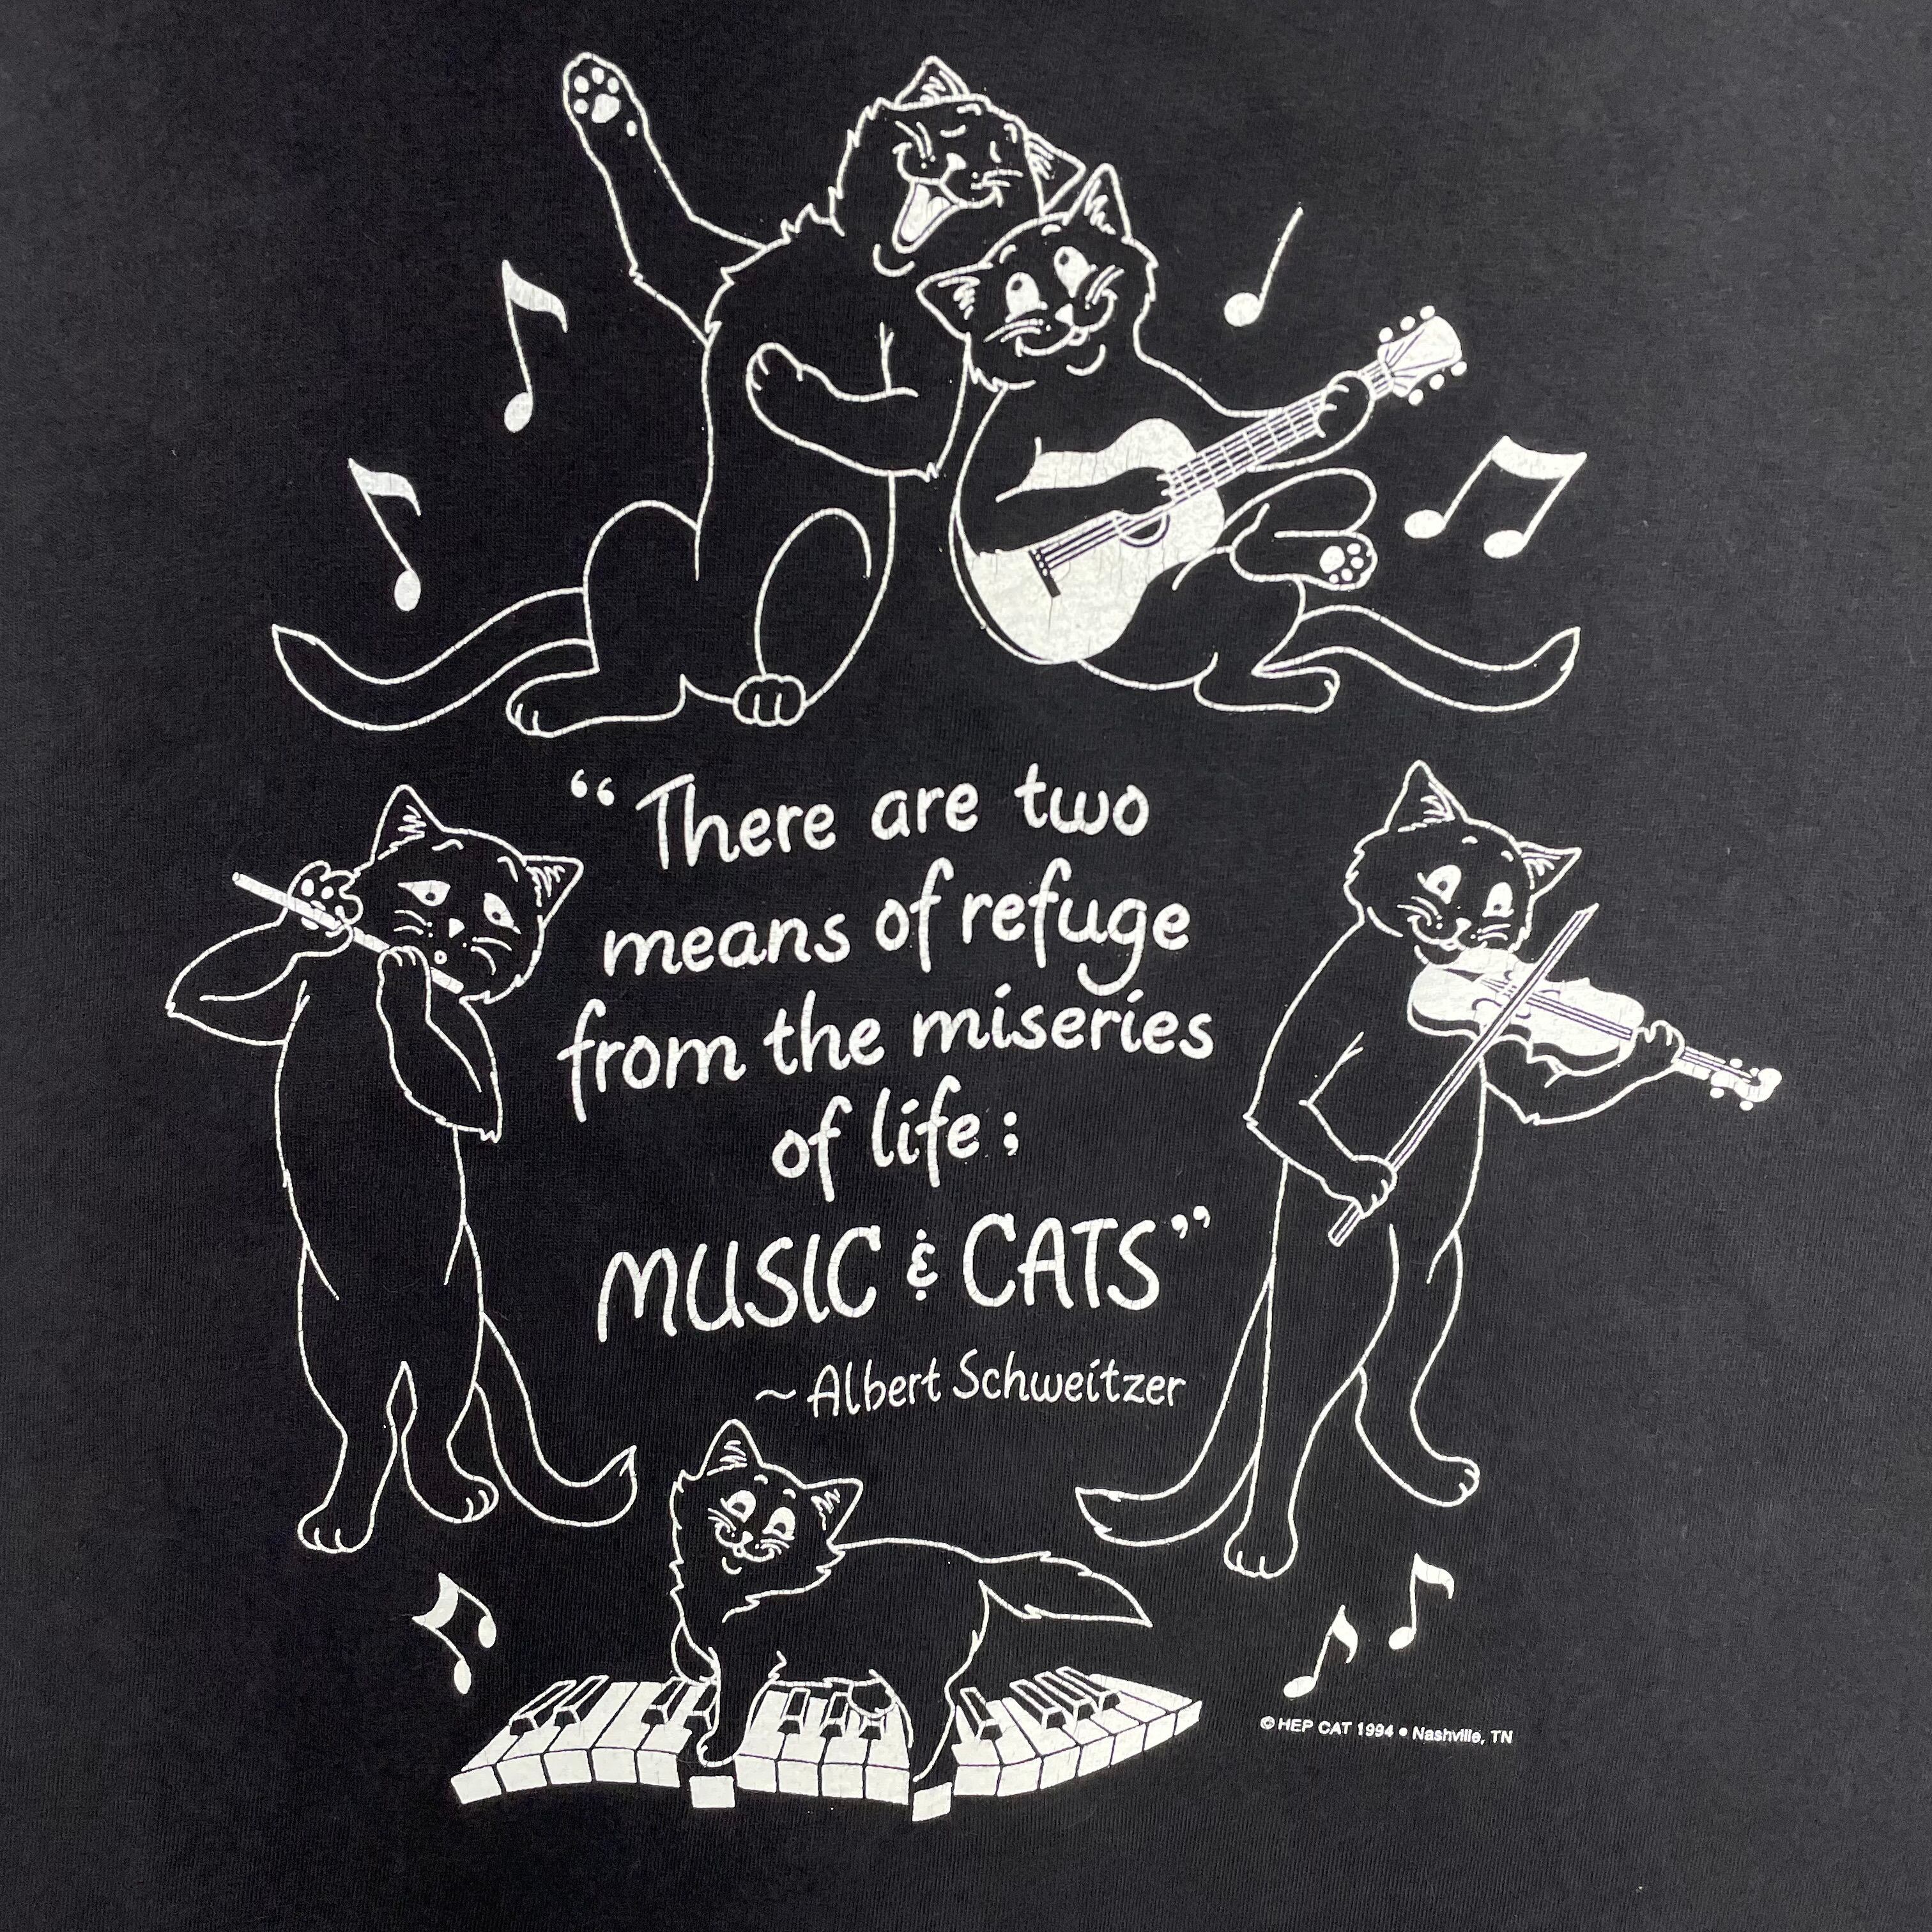 “There are two
means of refuge
from the miseries
of life;
MUSIC & CATS”
~Albert Schweitzer
© HEP CAT 1994 • Nashville, TN